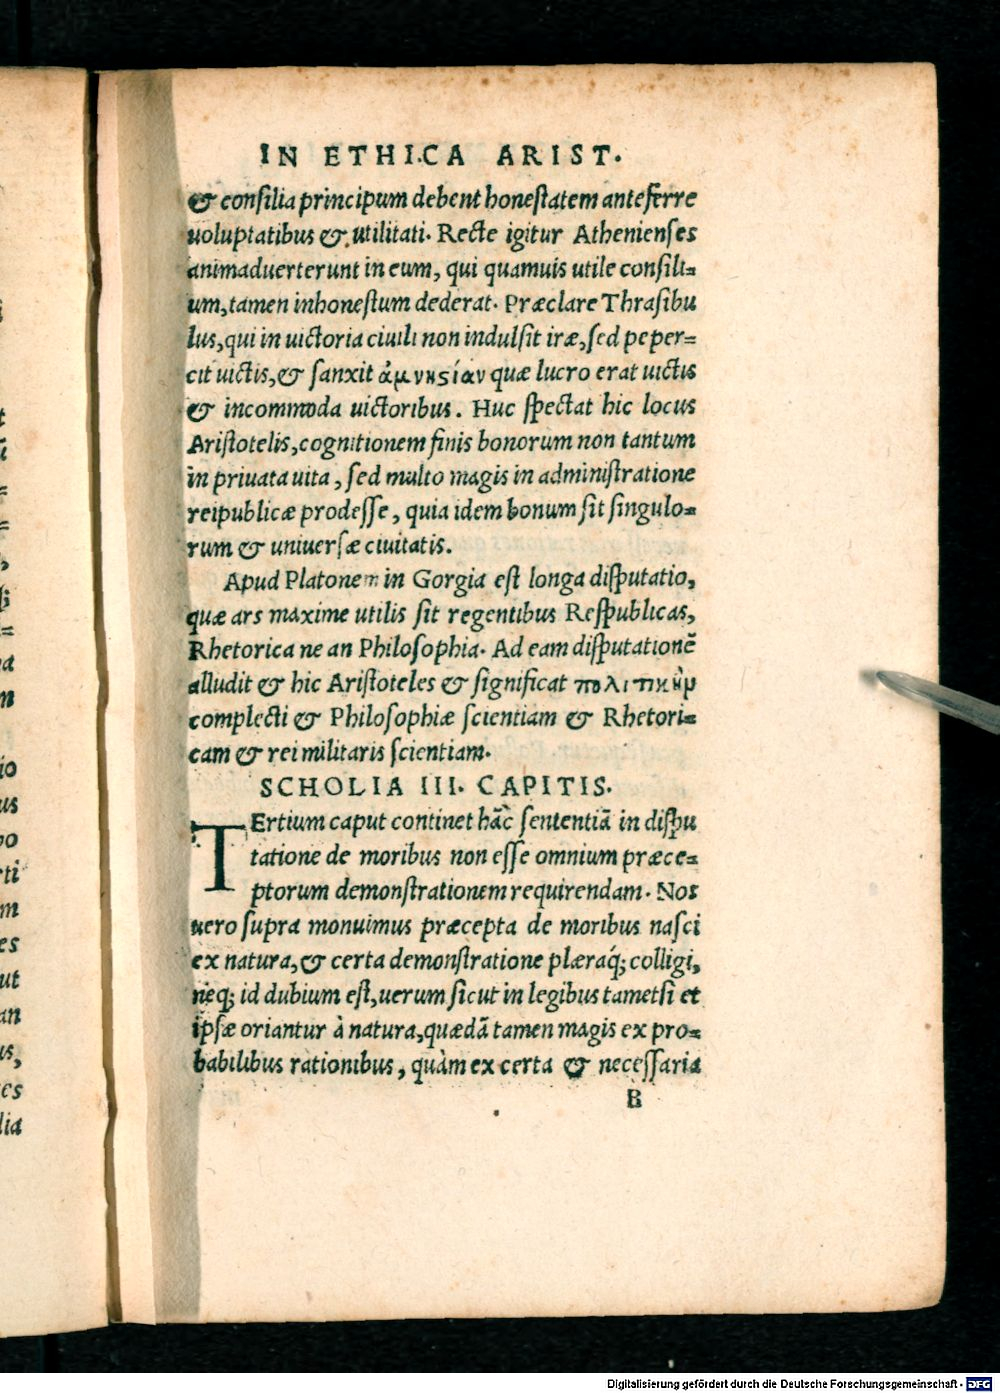 IN ETHICA ARIST.
& consilia principum debent honestatem anteferre
uoluptatibus & utilitati. Recte igitur Athenienses
animaduerterunt in eum, qui quamuis utile consili=
um, tamen inhonestum dederat. Præclare Thrasibu
lus, qui in uictoria ciuili non indulsit iræ, sed peper=
cit uictis, & sanxit ἀμνηϛίαν quæ lucro erat uictis
& incommoda uictoribus. Huc spectat hic locus
Aristotelis, cognitionem finis bonorum non tantum
in priuata uita, sed multo magis in administratione
reipublicæ prodesse, quia idem bonum sit singulo=
rum & uniuersæ ciuitatis.
Apud Platonem in Gorgia est longa disputatio,
quæ ars maxime utilis sit regentibus Respublicas,
Rhetorica ne an Philosophia. Ad eam disputationē
alludit & hic Aristoteles & significat πολιτικὴμ
complecti & Philosophiæ scientiam & Rhetori=
cam & rei militaris scientiam.
SCHOLIA III. CAPITIS.
TErtium caput continet hāc sententiā in dispu
tatione de moribus non esse omnium præce=
ptorum demonstrationem requirendam. Nos
uero supra monuimus præcepta de moribus nasci
ex natura, & certa demonstratione plæraq́; colligi,
neq; id dubium est, uerum sicut in legibus tametsi et
ipsæ oriantur à natura, quædā tamen magis ex pro=
babilibus rationibus, quàm ex certa & necessaria
B
Digitalisierung gefördert durch die Deutsche Forschungsgemeinschaft - DFG